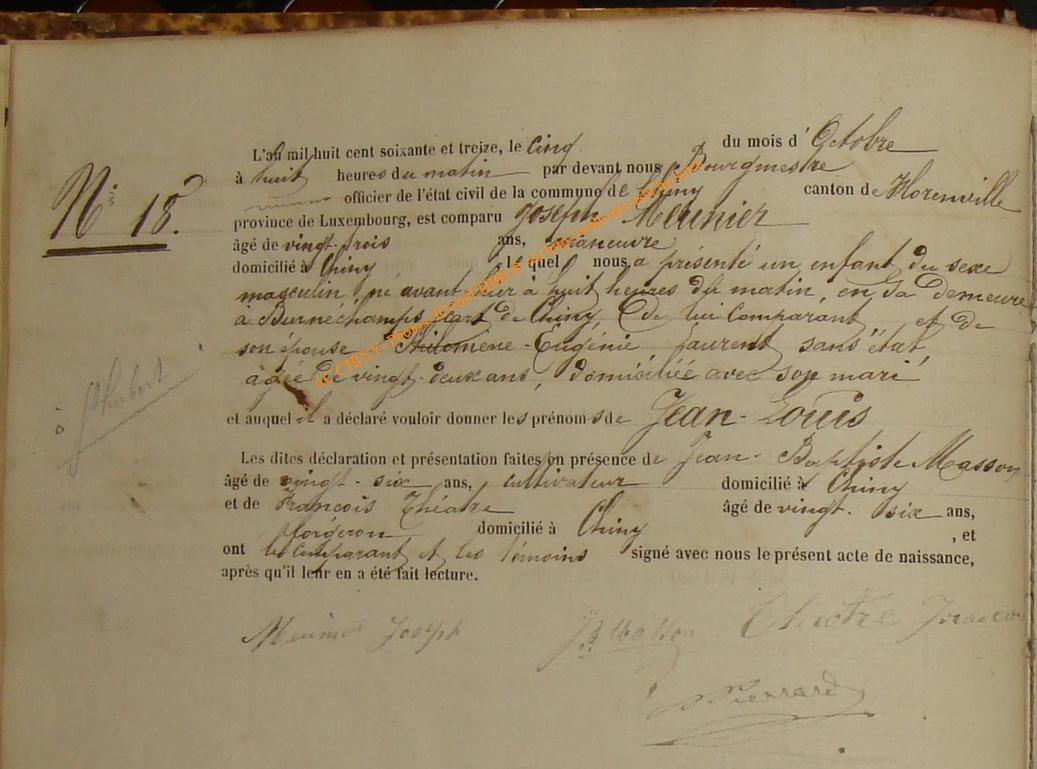 L'an mil huit cent soixante et treize, le Cinq du mois d'Octobre
à huit heures du matin par devant nous Bourgmestre
officier de l'état civil de la commune de Chiny canton de Florenville
N° 18.
province de Luxembourg, est comparu Joseph Meunier
âgé de vingt-trois ans, manœuvre
domicilié à Chiny, lequel nous a présenté un enfant du sexe
masculin, né avant hier à huit heures du matin, en sa demeure
à Burnéchamps, écart de Chiny, de lui Comparant et de
son épouse Philomène-Eugénie Laurent, sans état,
âgée de vingt-deux ans, domiciliée avec son mari
et auquel il a déclaré vouloir donner les prénoms de Jean-Louis
Les dites déclaration et présentation faites en présence de Jean-Baptiste Masson
âgé de vingt-six ans, cultivateur domicilié à Chiny
et de François Théâtre âgé de vingt-six ans,
forgeron domicilié à Chiny, et
ont le Comparant et les témoins signé avec nous le présent acte de naissance,
après qu'il leur en a été fait lecture.
Meunier Joseph JB Masson Theatre
Pierrard